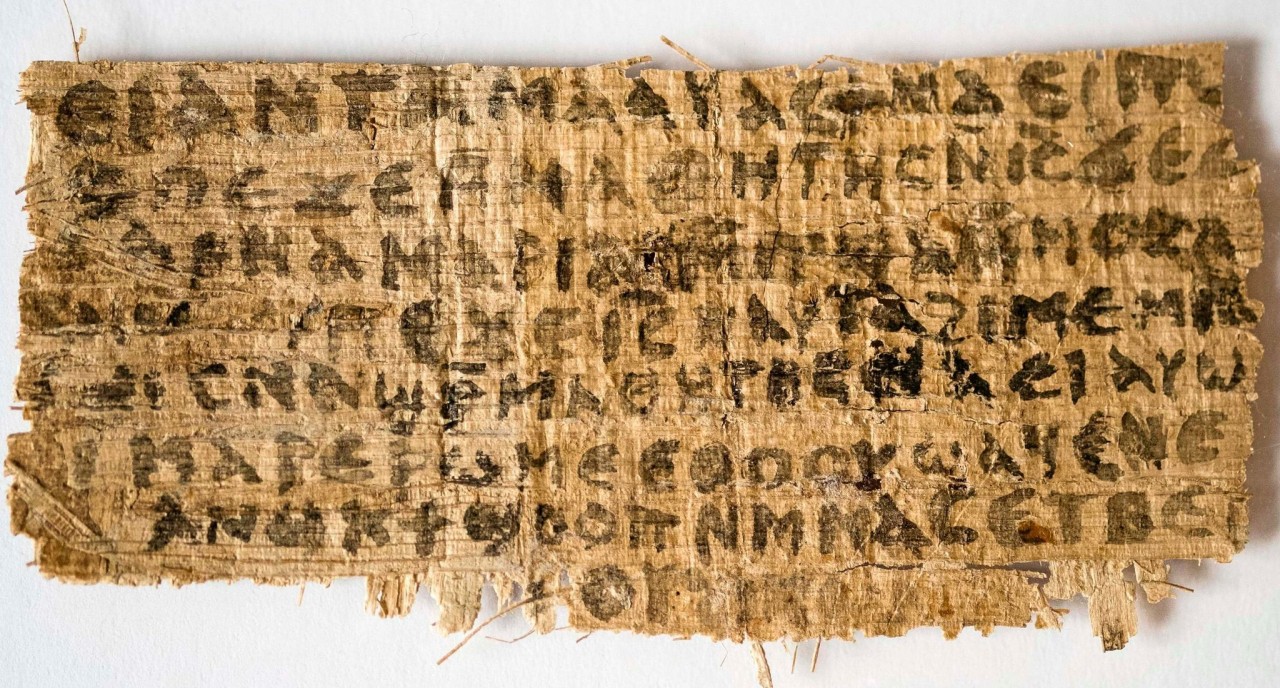 ⲉⲓ ⲁⲛ ⲧⲁⲙⲁⲁⲩ ⲁⲥϯ ⲛⲁⲉⲓ ⲡⲱ
ⲡⲉϫⲉ ⲙⲙⲁⲑⲏⲧⲏⲥ ⲛ̄ⲓ̅ⲥ̅ ϫⲉ ⲥ
ⲁⲣⲛⲁ ⲙⲁⲣⲓⲁⲙ
ⲡⲉϫⲉ ⲓ̅ⲥ̅ ⲛⲁⲩ ⲧⲁϩⲓⲙⲉ ⲙⲛ
ⲥⲛⲁϣⲣ̄ⲙⲁⲑⲏⲧⲏⲥ ⲛⲁⲉⲓ ⲁⲩⲱ
ⲓ ⲙⲁⲣⲉⲣⲱⲙⲉ ⲉⲑⲟⲟⲩ ϣⲁϥⲉ ⲛⲉ
ⲁⲛⲟⲕ ϯϣⲟⲟⲡ ⲛⲙⲙⲁⲥ ⲉⲧⲃⲉ ⲡ